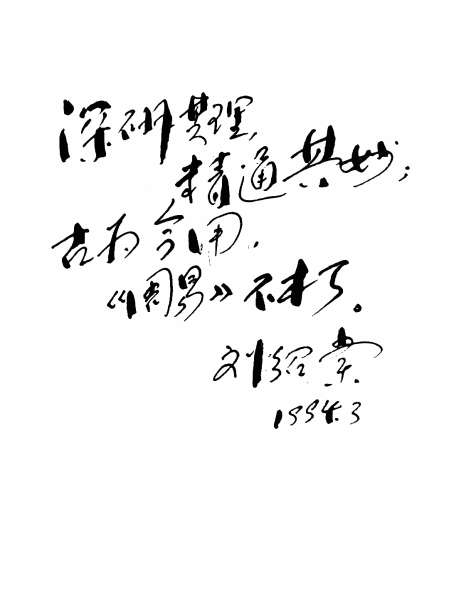 深研其理,
精通其妙;
古为今用,
《周易》不朽。
刘绍棠
1994.3